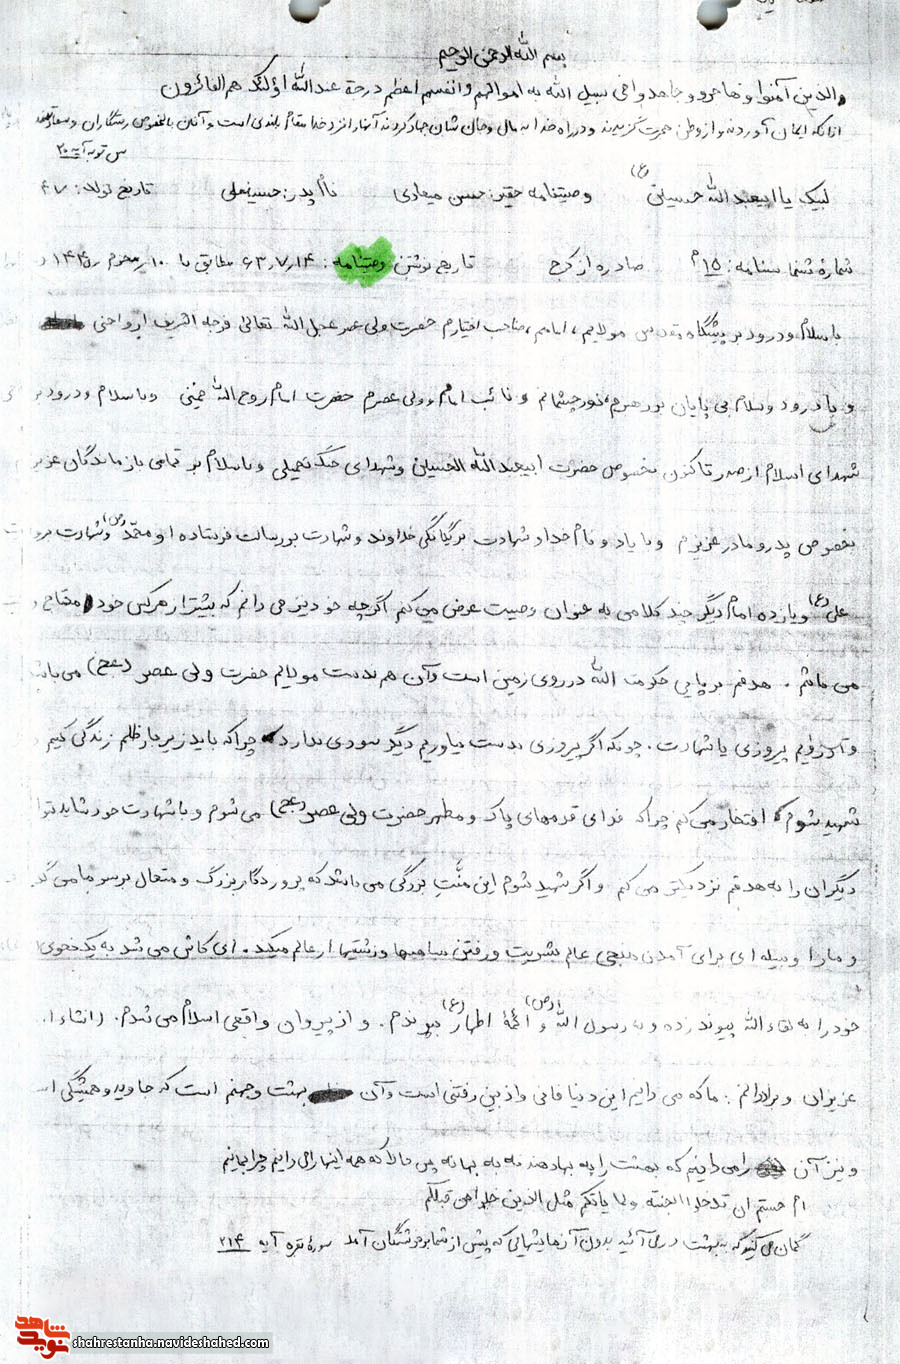 بسم الله الرحمن الرحیم
والذین آمنوا و هاجرو و جاهدوا فی سبیل الله به اموالهم و انفسهم اعظم درجة عندالله اولئک هم الفائزون
آنانکه ایمان آوردند و از وطن هجرت گزیدند و در راه خدا به مال و جان شان جهاد کردند آنها را نزد خدا مقام بلندی است و آنان بالخصوص رستگاران و سعادتمند
س توبه آیه ۲۰
لبیک یا ابیعبدالله حسین (ع) وصیتنامه حقیر: حسن میعادی نام پدر: حسینعلی تاریخ تولد: ۴۷
شماره شناسنامه: ۱۵ صادره از کرج تاریخ نوشتن وصیتنامه: ۶۳٫۷٫۱۴ مطابق با ۱۰ محرم
با سلام و درود بر پیشگاه مقدس مولایم، امامم، صاحب اختیارم حضرت ولی عصر عجل الله تعالی فرجه الشریف ارواحنی
و با درود و سلام بی پایان بر رهبرم، نور چشمانم و نائب امام و ولی عصرم حضرت امام روح الله خمینی و با سلام و درود بر
شهدای اسلام از صدر تا کنون بخصوص حضرت ابیعبدالله الحسین و شهدای جنگ تحمیلی و با سلام بر تمامی بازماندگان عزیز
بخصوص پدر و مادر عزیزم و با یاد و نام خدا و شهادت بر یگانگی خداوند و شهادت بر رسالت فرستاده او محمد (ص) و شهادت بر
علی (ع) و یازده امام دیگر چند کلامی به عنوان وصیت عرض می کنم اگرچه خود نیز می دانم که بیشتر از هر کس خود محتاج
می باشم. هدفم برپایی حکومت الله در روی زمین است و آن هم بدست مولایم حضرت ولی عصر (عج) می باشد
و آرزویم پیروزی یا شهادت. چونکه اگر پیروزی بدست نیاوریم دیگر سودی ندارد چرا که باید زیر بار ظلم زندگی کنیم
شهید شوم افتخار می کنم چرا که فدای قدمهای پاک و مطهر حضرت ولی عصر (عج) می شوم و با شهادت خود شاید
دیگران را به هدفم نزدیکتر می کنم و اگر شهید شوم این منّت بزرگی می باشد که پروردگار بزرگ و متعال بر سر ما می
و ما را وسیله ای برای آمدن منجی عالم بشریت و رفتن سیاهیها و زشتیها از عالم میکند. ای کاش می شد به یک نحوی
خود را به لقاء الله پیوند زده و به رسول الله (ص) و ائمهٔ اطهار (ع) بپیوندم. و از پیروان واقعی اسلام می شدم. (انشاءا
عزیزان و برادرانم: ما که می دانیم این دنیا فانی و از بین رفتنی است و آن بهشت و جهنم است که جاوید و همیشگی
و نیز آن را می دانیم که بهشت را به بها دهند نه به بهانه پس حالا که همه اینها را می دانیم چرا بمانیم
ام حسبتم ان تدخلوا الجنته و لما یاتکم مثل الذین خلوا من قبلکم
گمان می کنید که به بهشت در می آئید بدون آزمایشهایی که پیش از شما بر گذشتگان آمد سوره بقره آیه ۲۱۴
نوید شاهد
shahrestanha.navideshahed.com